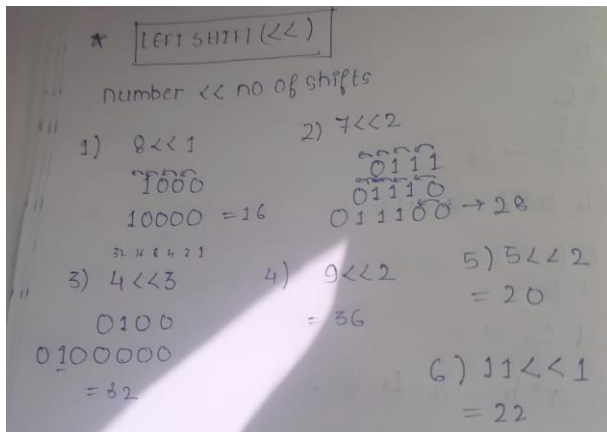 * LEFT SHIFT (<<)
number << no of shifts
1) 8<<1
1000
10000 = 16
2) 7<<2
0111
01110
011100 → 28
32 16 8 4 2 1
3) 4<<3
0100
0100000
= 32
4) 9<<2
= 36
5) 5<<2
= 20
6) 11<<1
= 22